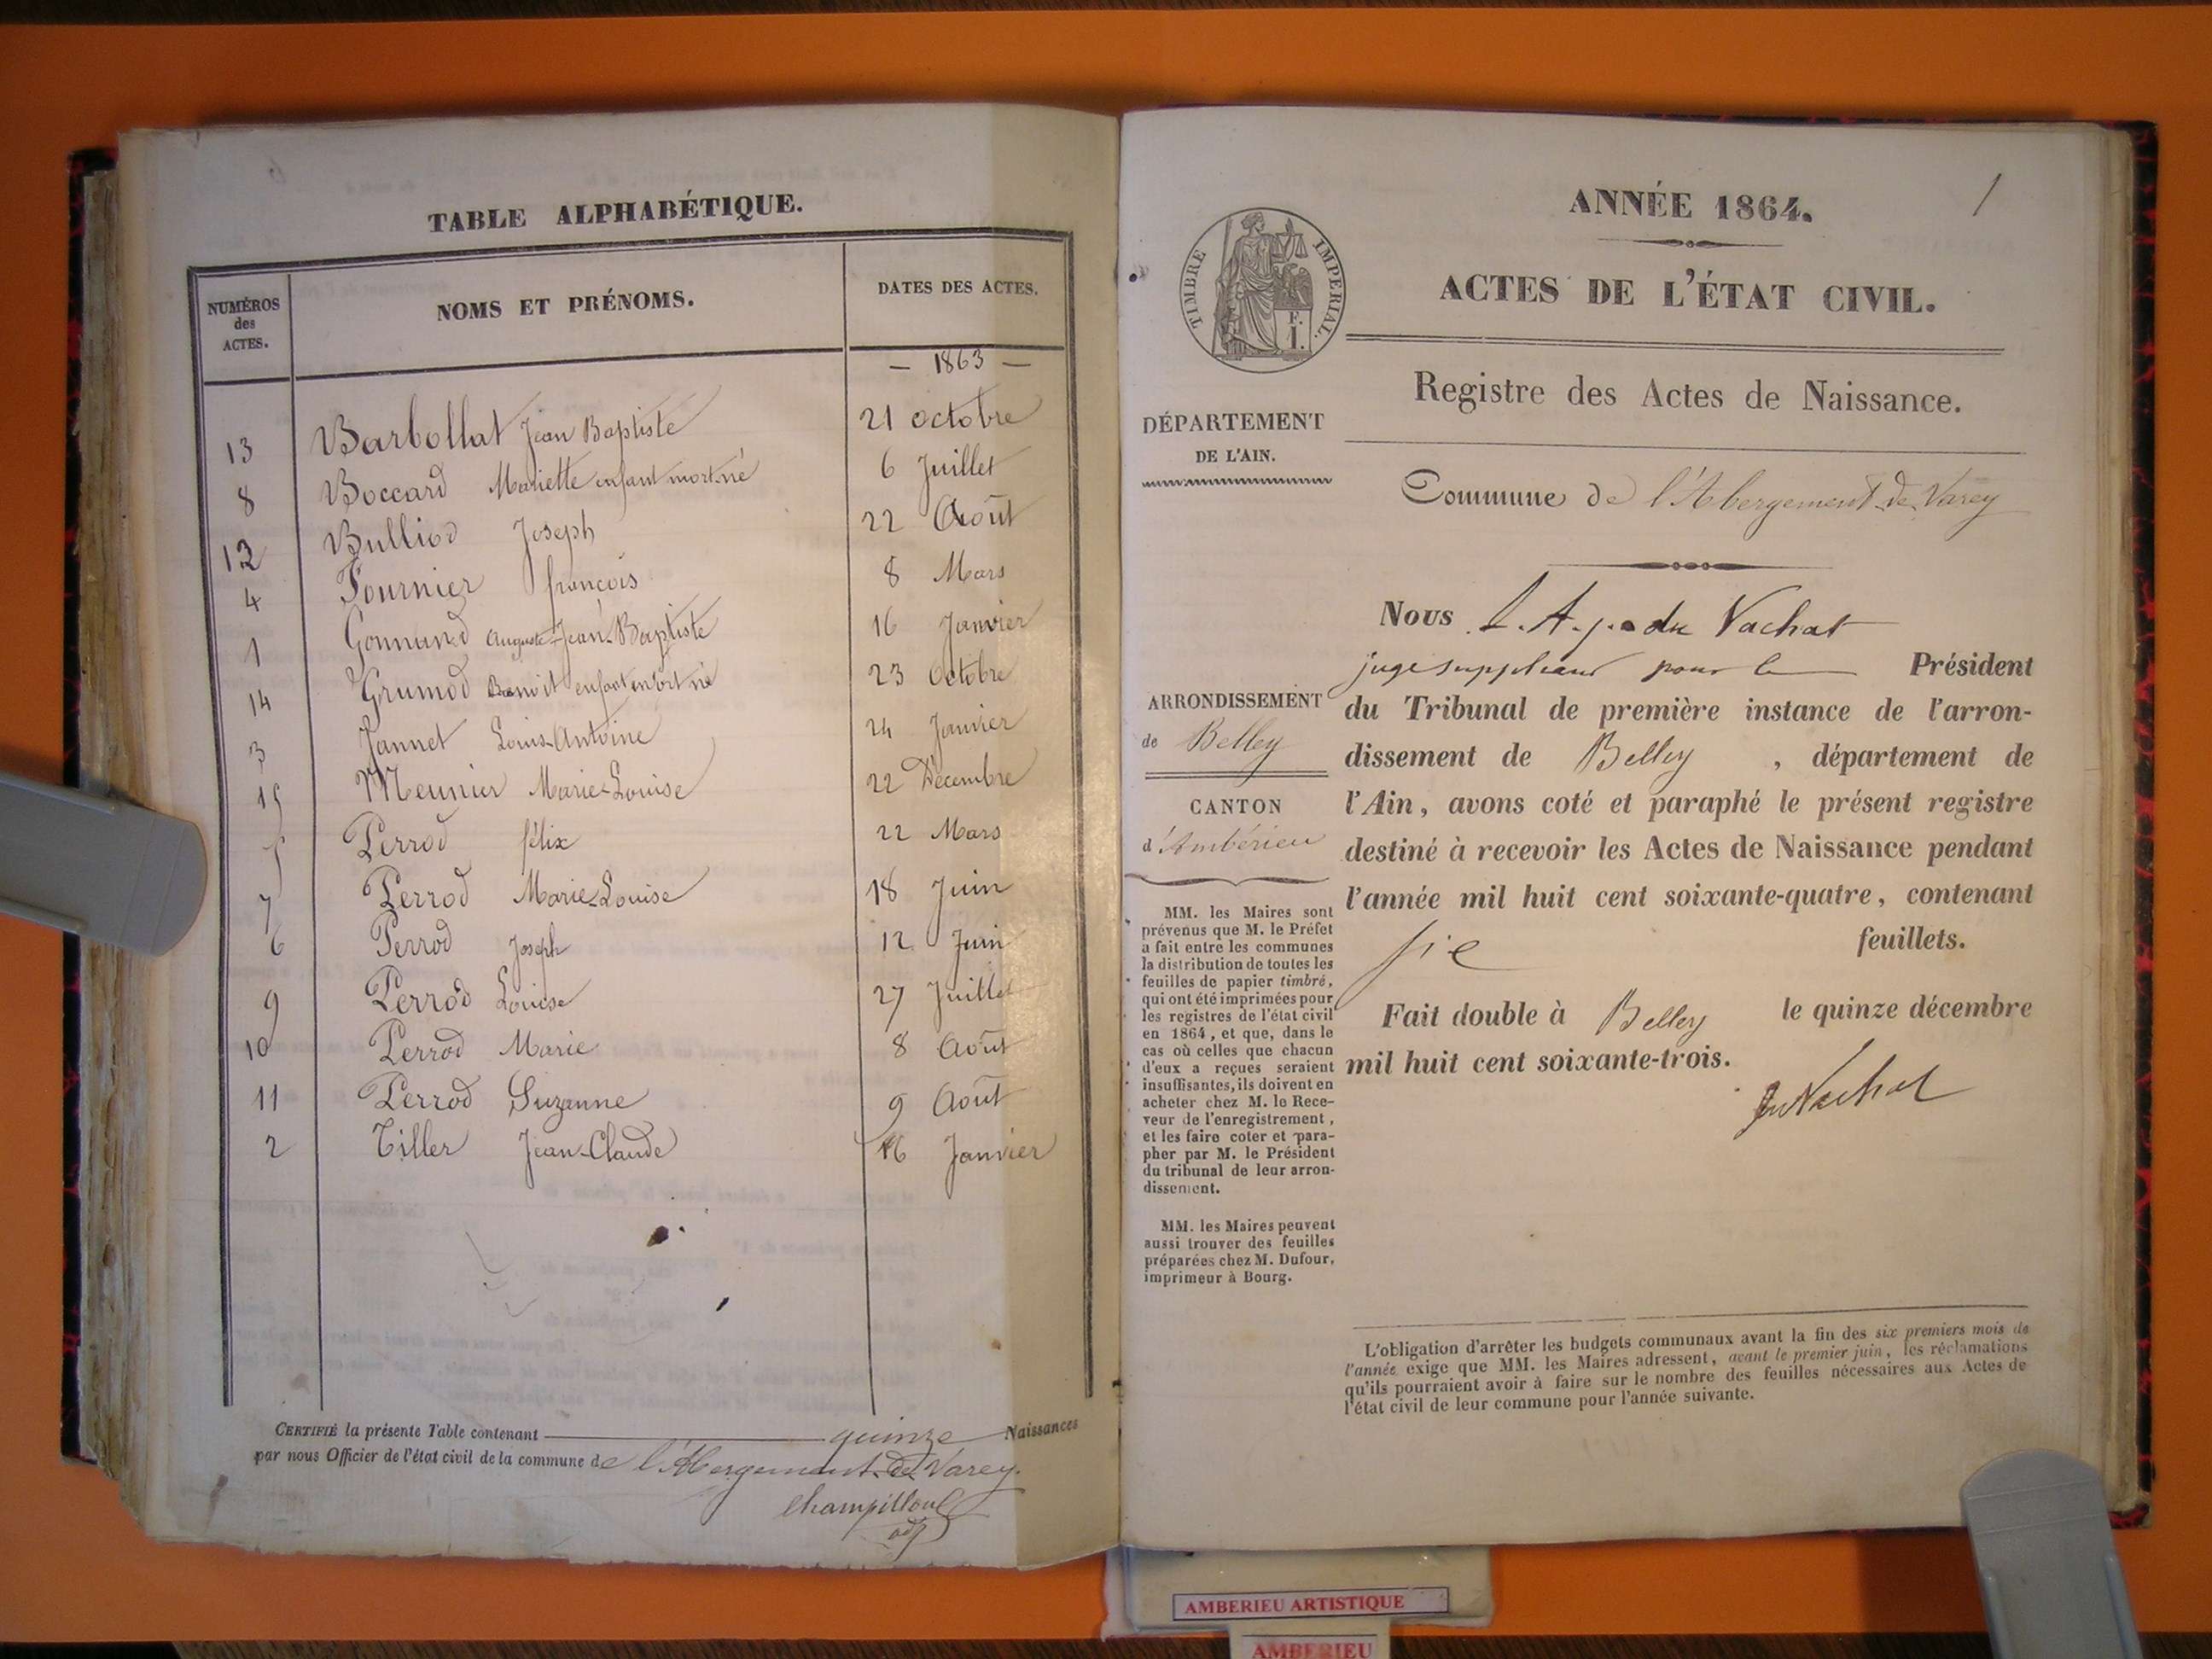 TABLE ALPHABÉTIQUE.
NUMÉROS
des
ACTES.
NOMS ET PRÉNOMS.
DATES DES ACTES.
— 1863 —
13 Barbollat Jean Baptiste 21 octobre
8 Boccard Mariette enfant mort-né 6 Juillet
12 Bulliod Joseph 22 Août
4 Fournier françois 8 Mars
1 Gonnand Auguste-Jean-Baptiste 16 Janvier
14 Grumod Benoit enfant mort né 23 Octobre
3 Jannet Louis-Antoine 24 Janvier
15 Meunier Marie-Louise 22 Décembre
5 Perrod félix 22 Mars
7 Perrod Marie-Louise 18 Juin
6 Perrod Joseph 12 Juin
9 Perrod Louise 27 Juillet
10 Perrod Marie 8 Août
11 Perrod Suzanne 9 Août
2 Tiller Jean-Claude 16 Janvier
CERTIFIÉ la présente Table contenant quinze Naissances
par nous Officier de l'état civil de la commune de l'Abergement-de-Varey.
Champilloul
adj
1
ANNÉE 1864.
ACTES DE L'ÉTAT CIVIL.
TIMBRE IMPERIAL.
F.
1.
Registre des Actes de Naissance.
DÉPARTEMENT
DE L'AIN.
Commune de l'Abergement-de-Varey
ARRONDISSEMENT
de Belley
CANTON
d'Ambérieu
MM. les Maires sont
prévenus que M. le Préfet
a fait entre les communes
la distribution de toutes les
feuilles de papier timbré,
qui ont été imprimées pour
les registres de l'état civil
en 1864, et que, dans le
cas où celles que chacun
d'eux a reçues seraient
insuffisantes, ils doivent en
acheter chez M. le Rece-
veur de l'enregistrement,
et les faire coter et para-
pher par M. le Président
du tribunal de leur arron-
dissement.
MM. les Maires peuvent
aussi trouver des feuilles
préparées chez M. Dufour,
imprimeur à Bourg.
Nous du Vachat
juge suppléant pour le Président
du Tribunal de première instance de l'arron-
dissement de Belley , département de
l'Ain, avons coté et paraphé le présent registre
destiné à recevoir les Actes de Naissance pendant
l'année mil huit cent soixante-quatre, contenant
feuillets.
Fait double à Belley le quinze décembre
mil huit cent soixante-trois.
du Vachat
L'obligation d'arrêter les budgets communaux avant la fin des six premiers mois de
l'année exige que MM. les Maires adressent, avant le premier juin, les réclamations
qu'ils pourraient avoir à faire sur le nombre des feuilles nécessaires aux Actes de
l'état civil de leur commune pour l'année suivante.
AMBERIEU ARTISTIQUE
AMBERIEU